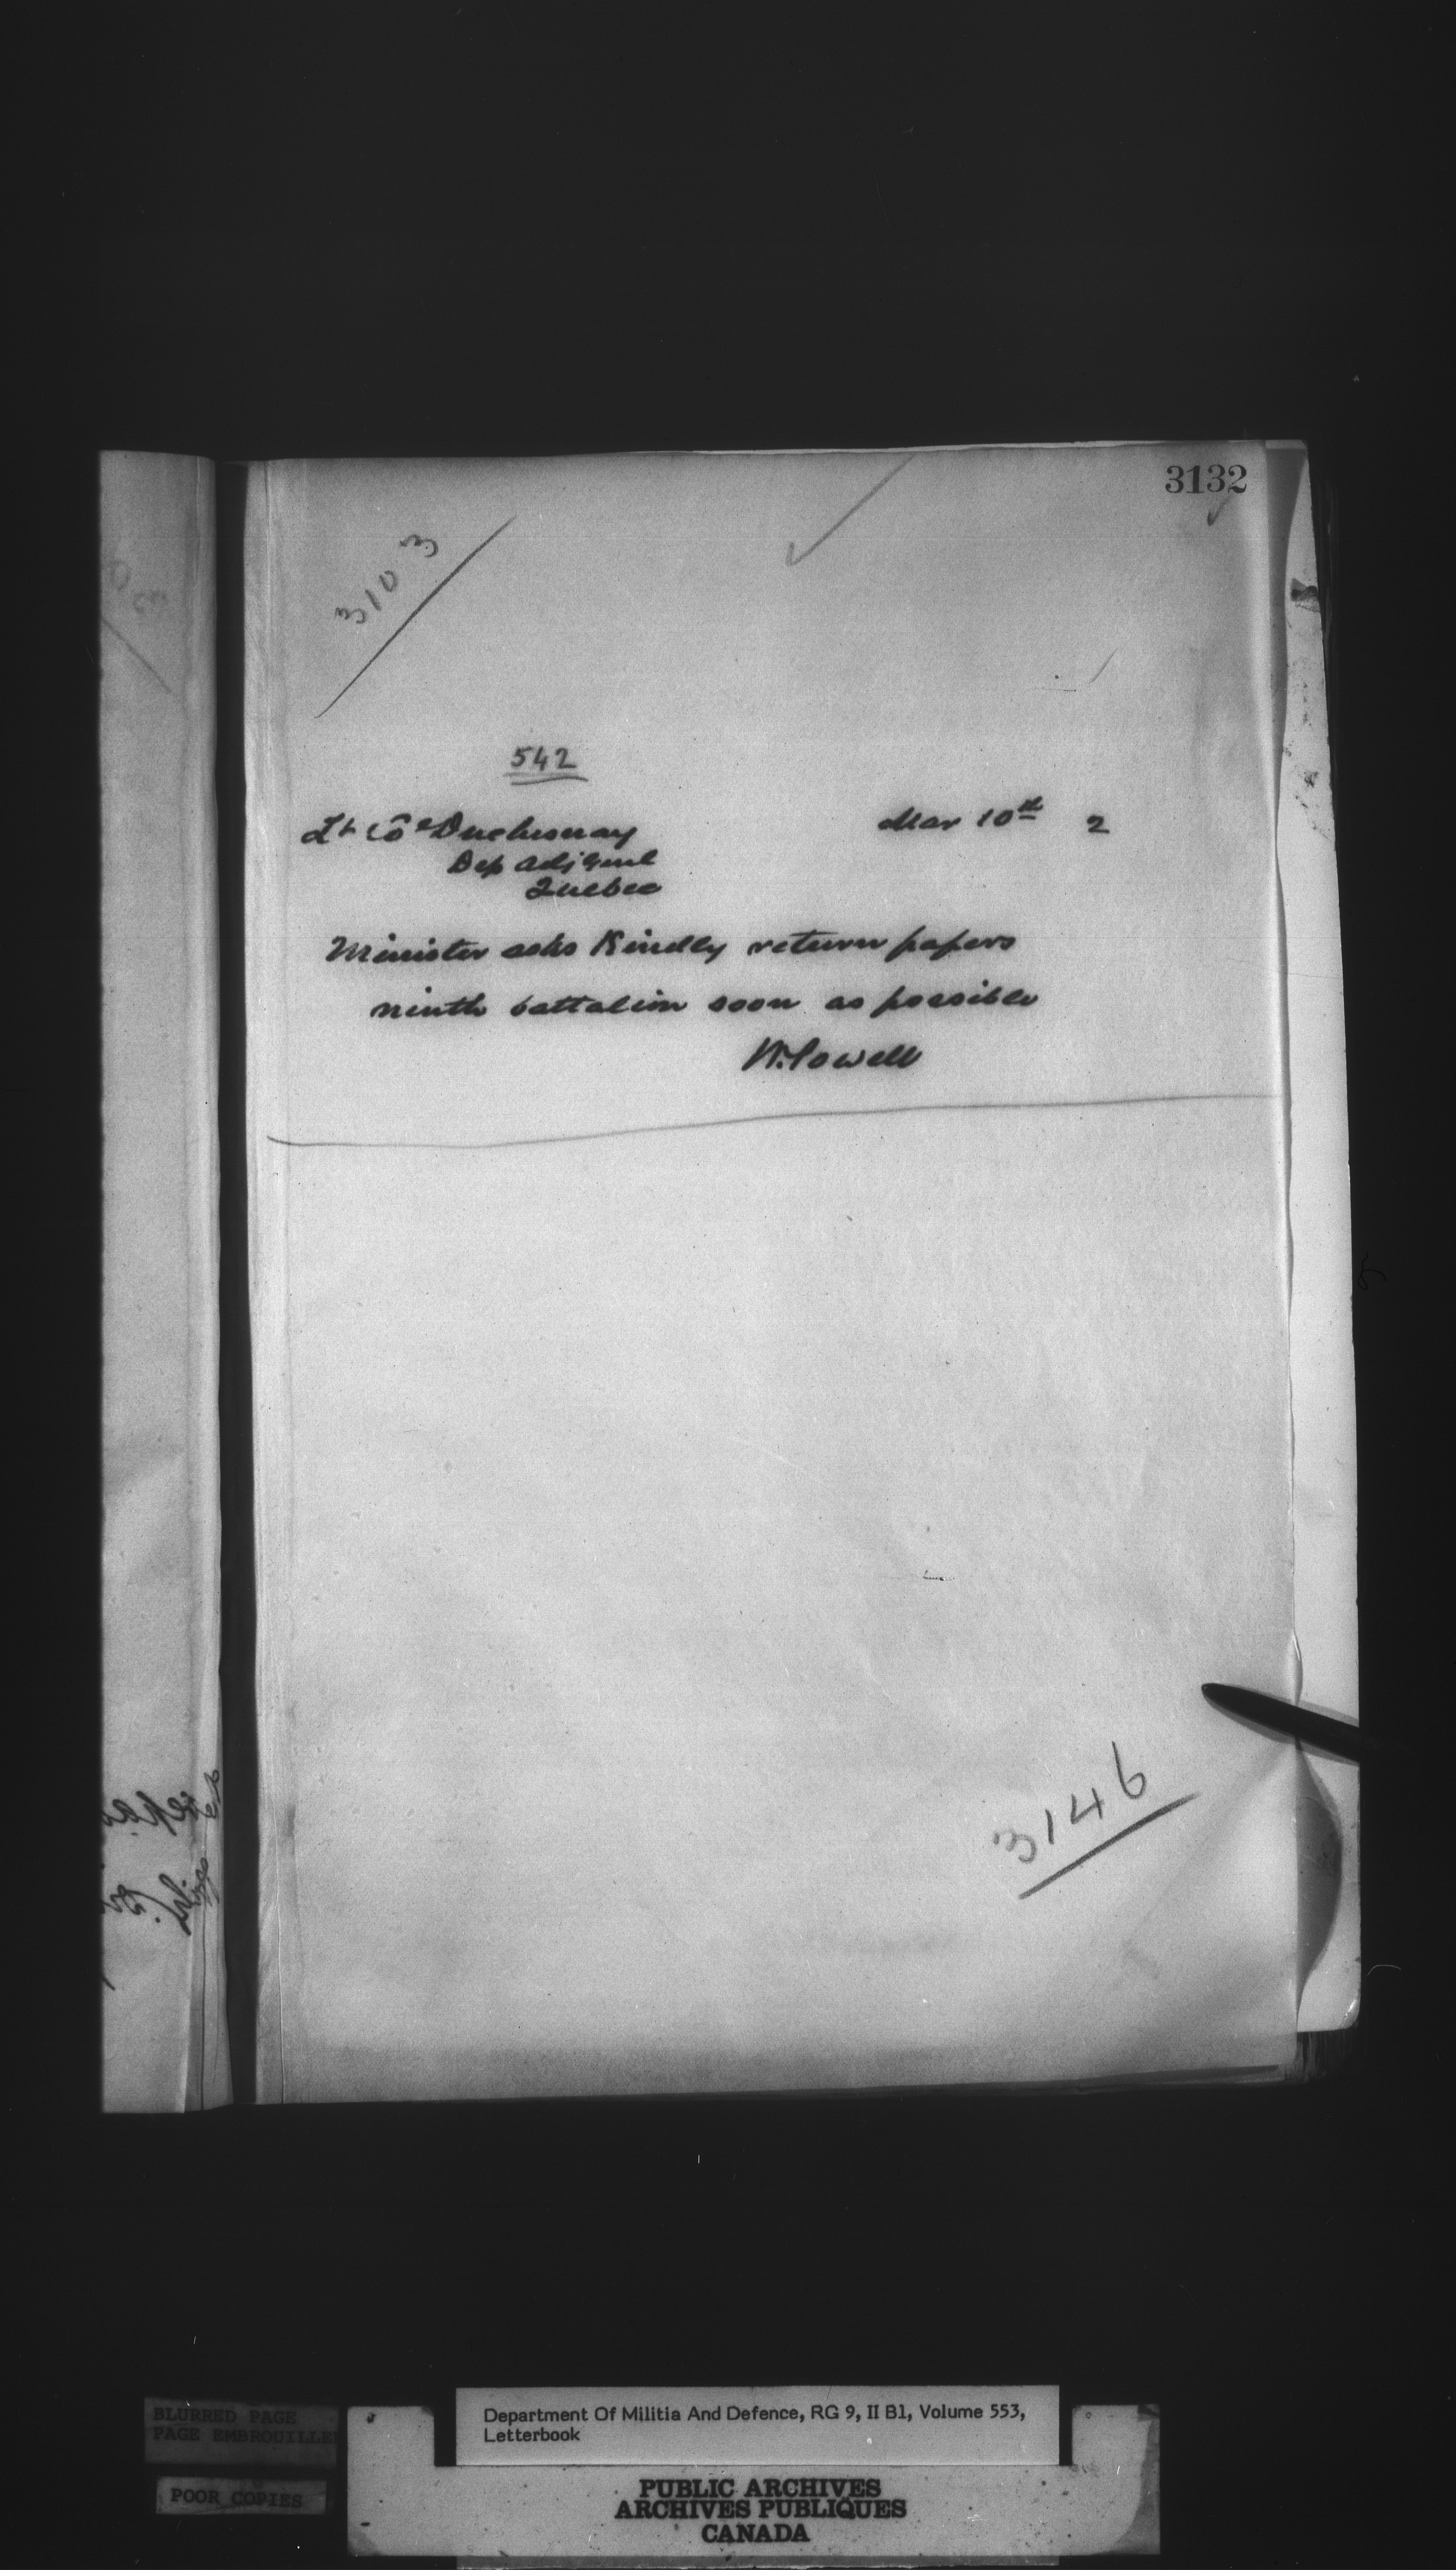 3132
3103
542
Lt Col Duchesnay
Mar 10th 2
Dep Adj Genl
Quebec
Minister asks Kindly return papers
ninth battalion soon as possible
W. Powell
3146
BLURRED PAGE
PAGE EMBROUILLE
POOR COPIES
Department Of Militia And Defence, RG 9, II B1, Volume 553,
Letterbook
PUBLIC ARCHIVES
ARCHIVES PUBLIQUES
CANADA